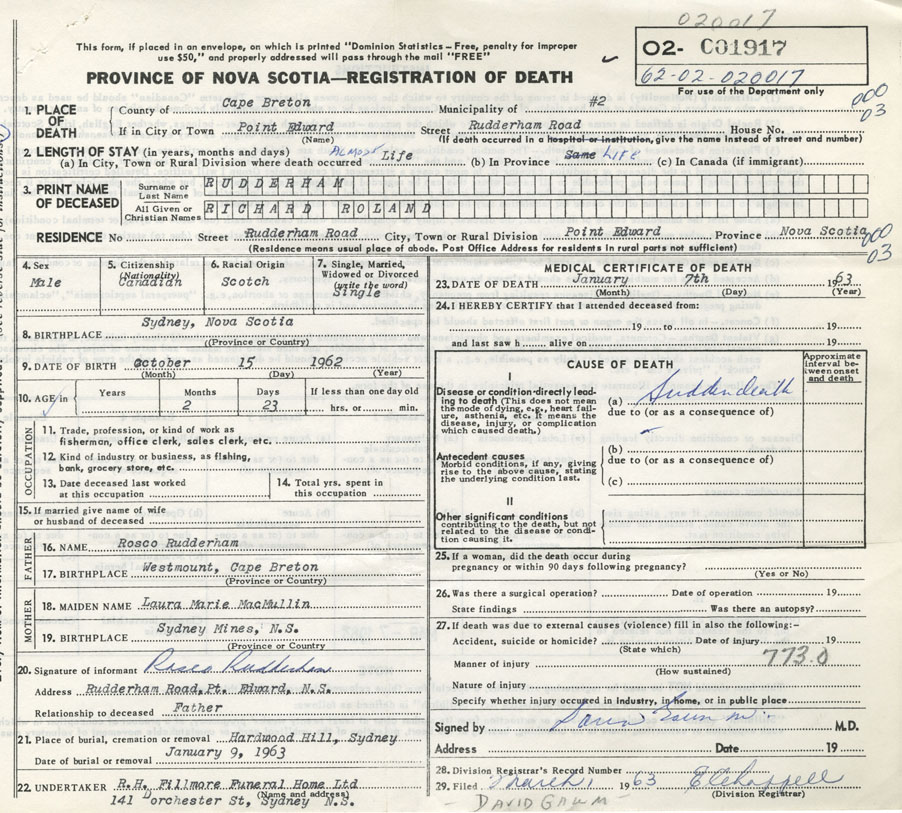 020017
This form, if placed in an envelope, on which is printed "Dominion Statistics – Free, penalty for improper
use $50," and properly addressed will pass through the mail "FREE"
02- C01917
62-02-020017
For use of the Department only
PROVINCE OF NOVA SCOTIA—REGISTRATION OF DEATH
000
03
1. PLACE OF DEATH
County of Cape Breton Municipality of #2
If in City or Town Point Edward Street Rudderham Road House No.
(Name) (If death occurred in a hospital or institution, give the name instead of street and number)
2. LENGTH OF STAY (in years, months and days)
(a) In City, Town or Rural Division where death occurred Almost Life (b) In Province Same Life (c) In Canada (if immigrant)
3. PRINT NAME OF DECEASED
Surname or Last Name RUDDERHAM
All Given or Christian Names RICHARD ROLAND
RESIDENCE No Street Rudderham Road City, Town or Rural Division Point Edward Province Nova Scotia
000
03
(Residence means usual place of abode. Post Office Address for residents in rural parts not sufficient)
4. Sex
Male
5. Citizenship (Nationality)
Canadian
6. Racial Origin
Scotch
7. Single, Married, Widowed or Divorced (write the word)
Single
8. BIRTHPLACE Sydney, Nova Scotia
(Province or Country)
9. DATE OF BIRTH October 15 1962
(Month) (Day) (Year)
10. AGE in Years Months Days If less than one day old
2 23 hrs. or min.
OCCUPATION
11. Trade, profession, or kind of work as
fisherman, office clerk, sales clerk, etc.
12. Kind of industry or business, as fishing,
bank, grocery store, etc.
13. Date deceased last worked
at this occupation
14. Total yrs. spent in
this occupation
15. If married give name of wife
or husband of deceased
FATHER
16. NAME Rosco Rudderham
17. BIRTHPLACE Westmount, Cape Breton
(Province or Country)
MOTHER
18. MAIDEN NAME Laura Marie MacMullin
19. BIRTHPLACE Sydney Mines, N.S.
(Province or Country)
20. Signature of informant Rosco Rudderham
Address Rudderham Road, Pt. Edward, N.S.
Relationship to deceased Father
21. Place of burial, cremation or removal Hardwood Hill, Sydney
Date of burial or removal January 9, 1963
22. UNDERTAKER R.H. Fillmore Funeral Home Ltd
(Name and address)
141 Dorchester St, Sydney N.S.
MEDICAL CERTIFICATE OF DEATH
23. DATE OF DEATH January 7th 1963
(Month) (Day) (Year)
24. I HEREBY CERTIFY that I attended deceased from:
19 to 19
and last saw h alive on 19
CAUSE OF DEATH
Approximate interval between onset and death
I
Disease or condition directly leading to death (This does not
mean the mode of dying, e.g., heart failure, asthenia, etc. It means the
disease, injury, or complication
which caused death.)
(a) Sudden death
due to (or as a consequence of)
Antecedent causes
Morbid conditions, if any, giving
rise to the above cause, stating
the underlying condition last.
(b)
due to (or as a consequence of)
(c)
II
Other significant conditions
contributing to the death, but not
related to the disease or condition
causing it.
25. If a woman, did the death occur during
pregnancy or within 90 days following pregnancy?
(Yes or No)
26. Was there a surgical operation? Date of operation 19
State findings Was there an autopsy?
27. If death was due to external causes (violence) fill in also the following:-
Accident, suicide or homicide? Date of injury 19
(State which)
773.0
Manner of injury
(How sustained)
Nature of injury
Specify whether injury occurred in industry, in home, or in public place
Signed by M.D.
Address Date 19
28. Division Registrar's Record Number
29. Filed March 1 1963
(Division Registrar)
- DAVID GAUM -